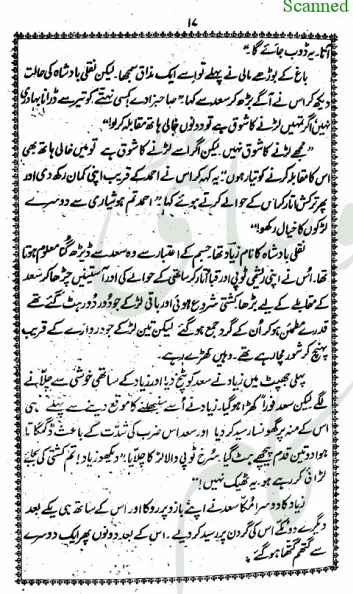 Scanned
۱۷
آتا۔ یہ ڈوب جائے گا۔"
باغ کے بوڑھے مالی نے پہلے تو اسے ایک مذاق سمجھا۔ لیکن نقلی بادشاہ کی حالت
دیکھ کر اس نے آگے بڑھ کر سعد سے کہا۔ "صاحبزادے کسی نہتے کو تیر سے ڈرانا بہادری
نہیں اگر تمہیں لڑنے کا شوق ہے تو دونوں خالی ہاتھ مقابلہ کر لو!"
"مجھے لڑنے کا شوق نہیں لیکن اگر اسے لڑنے کا شوق ہے تو میں خالی ہاتھ بھی
اس کا مقابلہ کرنے کو تیار ہوں" یہ کہہ کر اس نے احمد کے قریب اپنی کمان رکھ دی اور
پھر ترکش اتار کر اس کے حوالے کرتے ہوئے کہا "احمد تم ہوشیاری سے دوسرے
لڑکوں کا خیال رکھو!"
نقلی بادشاہ کا نام زیاد تھا۔ جسم کے اعتبار سے وہ سعد سے ڈیڑھ گنا معلوم ہوتا
تھا۔ اُس نے اپنی ریشمی ٹوپی اور قبا اتار کر ساتھی کے حوالے کی اور آستینیں چڑھا کر سعد
کے مقابلے کے لیے بڑھا۔ کشتی شروع ہوئی اور باقی لڑکے جو دُور دُور ہٹ گئے تھے
قدرے مطمئن ہو کر اُن کے گرد جمع ہو گئے لیکن تین لڑکے جو دروازے کے قریب
پہنچ کر شور مچا رہے تھے۔ وہیں کھڑے رہے۔
پہلی جھپٹ میں زیاد نے سعد کو پٹخ دیا اور زیاد کے ساتھی خوشی سے چلّانے
لگے لیکن سعد فوراً کھڑا ہو گیا۔ زیاد نے اُسے سنبھلنے کا موقع دینے سے پہلے ہی
اس کے منہ پر گھونسا رسید کر دیا اور سعد اس ضرب کی شدّت کے باعث ڈگمگاتا
ہوا دو تین قدم پیچھے ہٹ گیا۔ سُرخ ٹوپی والا لڑکا چلّایا: "دیکھو زیاد! تم کشتی کی بجائے
لڑائی کر رہے ہو۔ یہ ٹھیک نہیں!"
زیاد کا دوسرا مُکا سعد نے اپنے بازو پر روکا اور اس کے ساتھ ہی یکے بعد
دیگرے دو مُکے اس کی گردن پر رسید کر دیے۔ اس کے بعد دونوں پھر ایک دوسرے
سے گتھم گتھا ہو گئے